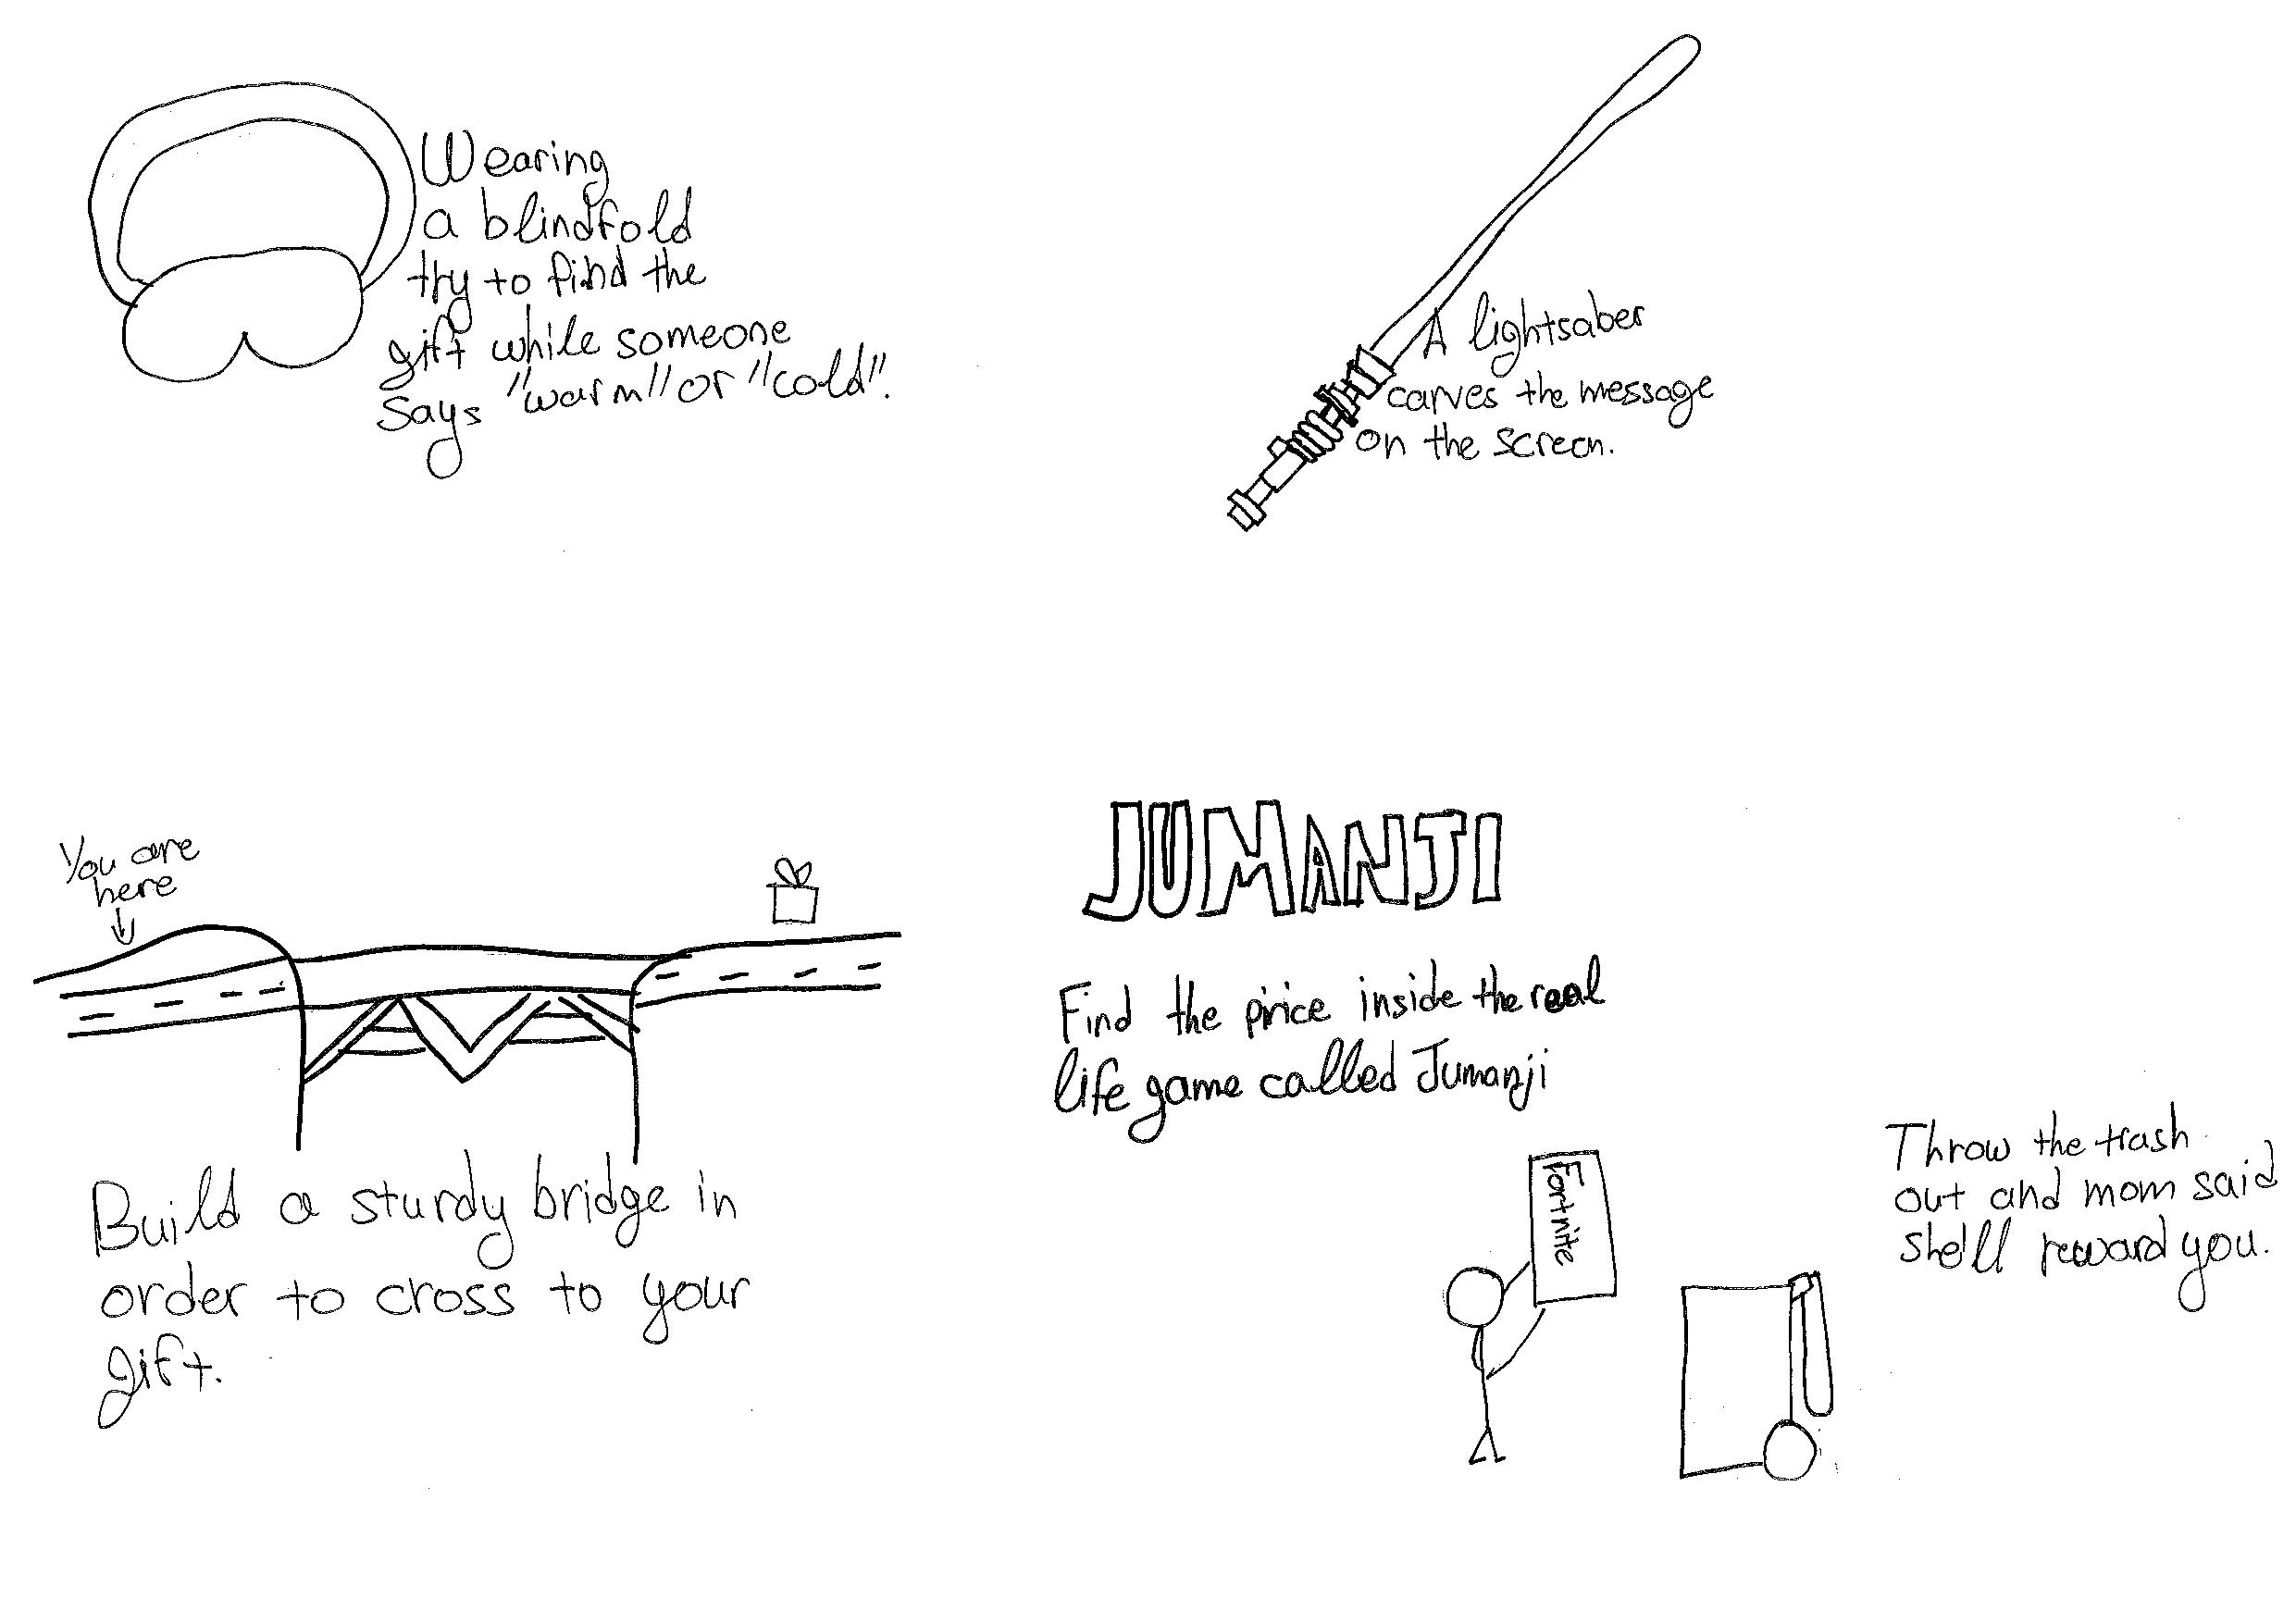 Wearing
a blindfold
try to find the
gift while someone
says "warm" or "cold".
A lightsaber
carves the message
on the screen.
You are
here
Build a sturdy bridge in
order to cross to your
gift.
JUMANJI
Find the price inside the real
life game called Jumanji
Fortnite
Throw the trash
out and mom said
she'll reward you.